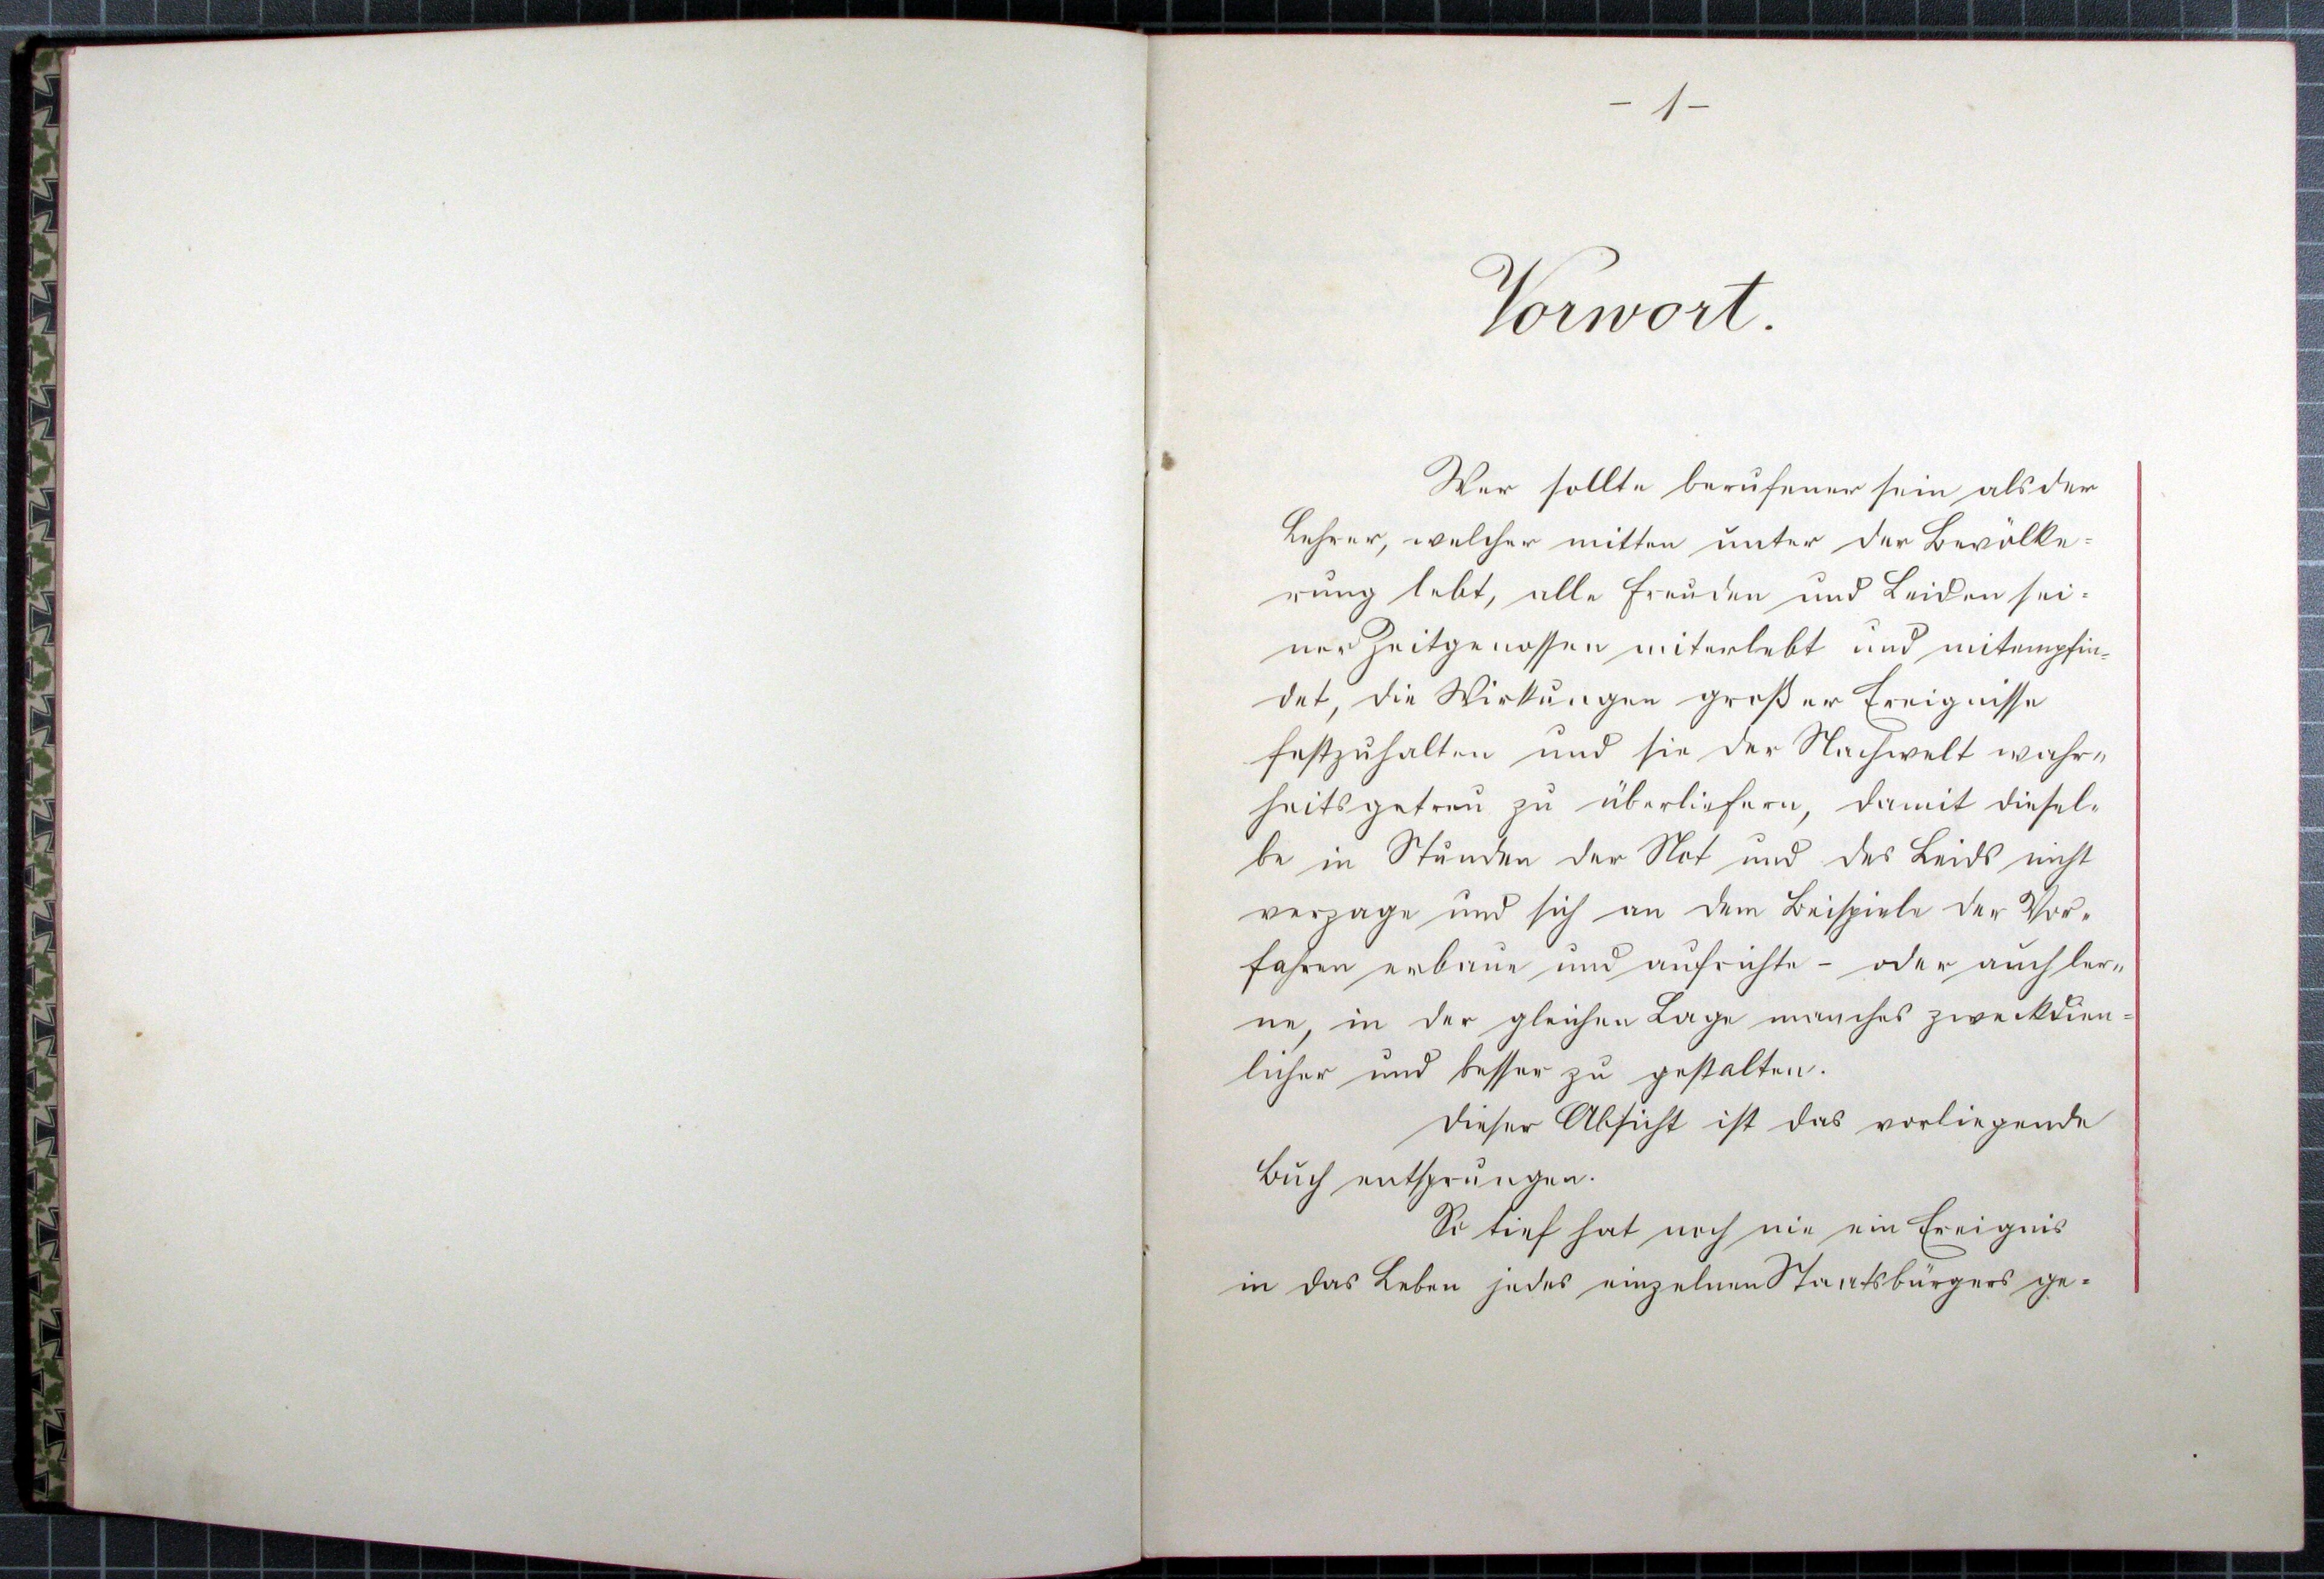 - 1 -
Vorwort.
Wer sollte berufener sein als der
Lehrer, welcher mitten unter der Bevölke=
rung lebt, alle Freuden und Leiden sei=
ner Zeitgenossen miterlebt und mitempfin=
det, die Wirkungen großer Ereignisse
festzuhalten und sie der Nachwelt wahr=
heitsgetreu zu überliefern, damit diesel=
be in Stunden der Not und des Leids nicht
verzage und sich an dem Beispiele der Vor=
fahren erbaue und aufrichte - oder auch ler=
ne, in der gleichen Lage manches zweckdien=
licher und besser zu gestalten.
Dieser Absicht ist das vorliegende
Buch entsprungen.
So tief hat noch nie ein Ereignis
in das Leben jedes einzelnen Staatsbürgers ge=